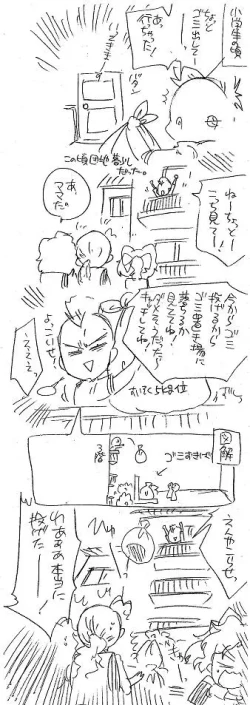 小学生の頃
ちょっと
ゴミ出して
あ、
行っちゃった!
バタン
この頃団地暮らし
だった。
ねー!ちょっとー
こっち見てー!
あ、
ママだ。
今からゴミ
投げるから
ゴミ置き場に
落ちるか
見ててねー!
キャッチしてね!
よっこいせ!
ええぇ、
図解
ゴミすてば
3階
えんやこらせ
わああぁ本当に
投げたー!